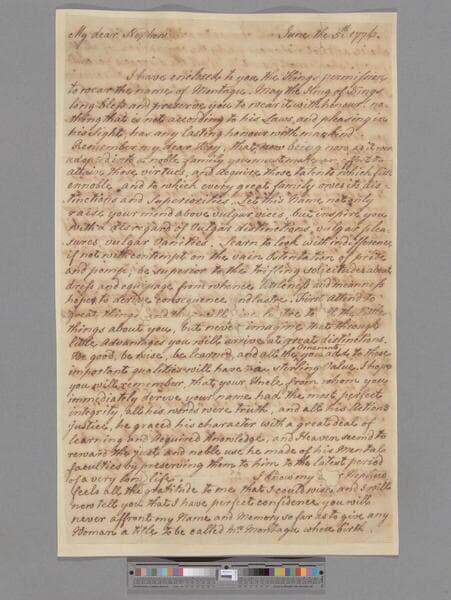 My dear Nephew June the 5th 1776.
I have enclosed to you the Kings permission
to wear the name of Montagu. May the King of Kings
long bless and preserve you to wear it with honour. no
thing that is not according to his Laws, and pleasing in
his sight, has any lasting honour with mankind.
Remember my dear Boy, that, now being now as it were
adopted into a noble family you must make an effort to
attain those virtues, and acquire those talents which first
ennoble, and to which every great family owes its dis-
tinctions and Superiorities. Let this Name not only
raise your mind above vulgar vices, but inspire you
with a disregard of vulgar distinctions, vulgar plea
sures, vulgar Vanities. Learn to look with indifference
if not with contempt on the vain Ostentation of pride
and pomp; be superior to the trifling solicitudes about
dress and equipage from whence littleness and meanness
hopes to derive consequence and lustre. First attend to
great things, and they will give lustre to all the little
things about you, but never imagine that through
little advantages you will arrive at great distinctions.
Be good, be wise, be learned, and all the ornaments you add to these
important qualities will have a sterling Value. I hope
you will remember, that your Uncle from whom you
immediately derive your name had the most perfect
integrity, all his words were truth, and all his Actions
justice, he graced his character with a great deal of
learning and acquired knowledge, and Heaven seemd to
reward the just and noble use he made of his Mental
faculties by preserving them to him to the latest period
of a very long life. I know my Nephew
feels all the gratitude to me that I could wish, and I will
now tell you that I have perfect confidence you will
never affront my Name and Memory so far as to give any
Woman a title to be called Mrs Montagu whose birth